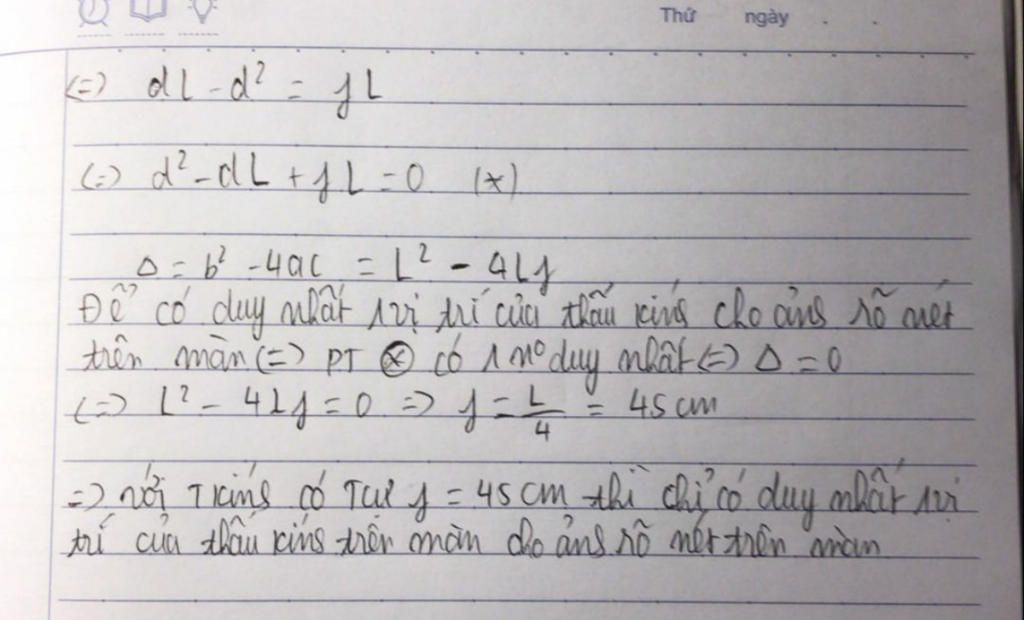 Thứ ngày . .
(=) dL - d² = fL
(=) d² - dL + fL = 0 (*)
Δ = b² - 4ac = L² - 4Lf
Để có duy nhất 1 vị trí của thấu kính cho ảnh rõ nét
trên màn (=) PT (*) có 1 n° duy nhất (=) Δ = 0
(=) L² - 4Lf = 0 => f = L/4 = 45 cm
=> với Tkính có Tcự f = 45 cm thì chỉ có duy nhất 1 vị
trí của thấu kính trên màn cho ảnh rõ nét trên màn